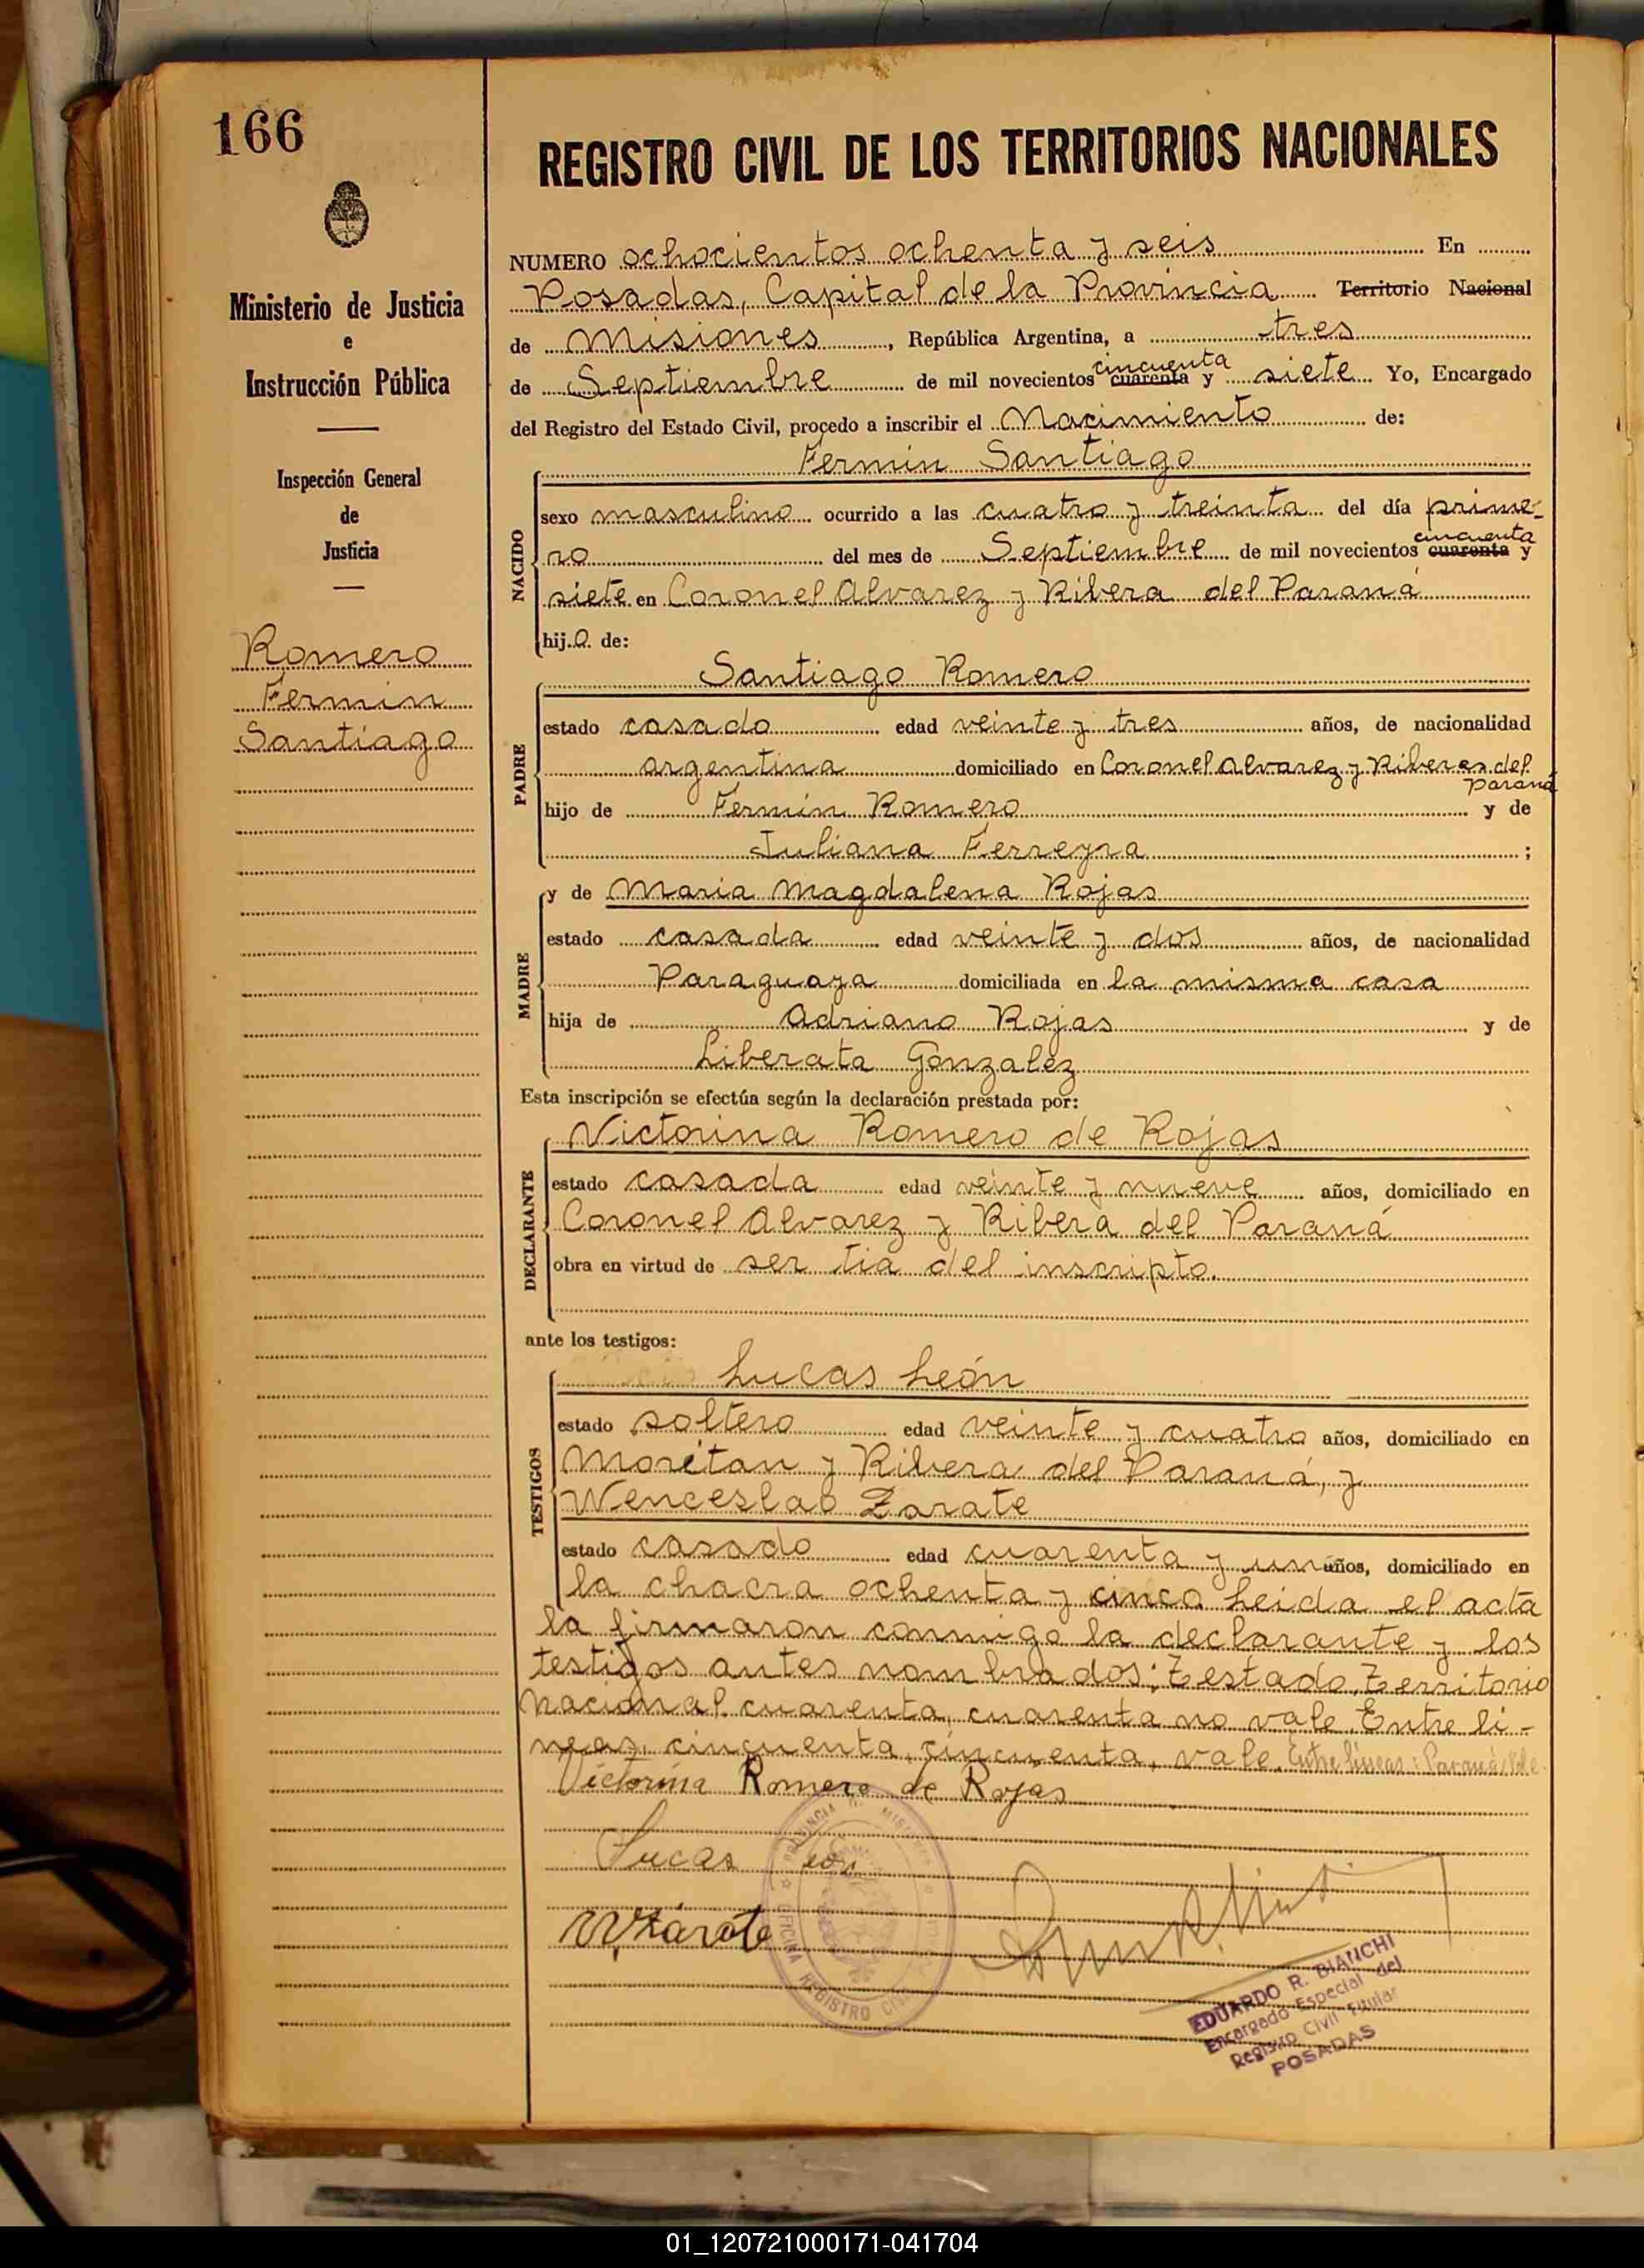 166
REGISTRO CIVIL DE LOS TERRITORIOS NACIONALES
Ministerio de Justicia
e
Instrucción Pública
Inspección General
de
Justicia
Romero
Fermin
Santiago
NUMERO ochocientos ochenta y seis En
Posadas, Capital de la Provincia Territorio Nacional
de Misiones, República Argentina, a tres
cincuenta
de Septiembre de mil novecientos cuarenta y siete Yo, Encargado
del Registro del Estado Civil, procedo a inscribir el Nacimiento de:
Fermin Santiago
NACIDO
sexo masculino ocurrido a las cuatro y treinta del día prime-
cincuenta
ro del mes de Septiembre de mil novecientos cuarenta y
siete en Coronel Alvarez y Ribera del Paraná
hijo de:
Santiago Romero
PADRE
estado casado edad veinte y tres años, de nacionalidad
argentina domiciliado en Coronel Alvarez y Riberas del
Paraná
hijo de Fermin Romero y de
Juliana Ferreyra ;
MADRE
y de Maria Magdalena Rojas
estado casada edad veinte y dos años, de nacionalidad
Paraguaya domiciliada en la misma casa
hija de Adriano Rojas y de
Liberata Gonzalez
Esta inscripción se efectúa según la declaración prestada por:
Victorina Romero de Rojas
DECLARANTE
estado casada edad veinte y nueve años, domiciliado en
Coronel Alvarez y Ribera del Paraná
obra en virtud de ser tia del inscripto.
ante los testigos:
Lucas León
TESTIGOS
estado soltero edad veinte y cuatro años, domiciliado en
Moritan y Ribera del Paraná, y
Wenceslao Zarate
estado casado edad cuarenta y un años, domiciliado en
la chacra ochenta y cinco Leida el acta
la firmaron conmigo la declarante y los
testigos antes nombrados: Testado, Territorio
Nacional. cuarenta, cuarenta no vale. Entre li-
neas, cincuenta, cincuenta, vale. Entre líneas: Paraná: Vale.
Victorina Romero de Rojas
Lucas León
W Zárate
PROVINCIA DE MISIONES
OFICINA REGISTRO CIVIL
EDUARDO R. BIANCHI
Encargado Especial del
Registro Civil Titular
POSADAS
01_120721000171-041704